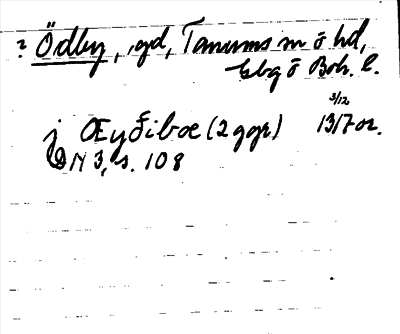 ? Ödby, gd, Tanums sn o hd,
Gbg o Boh. l.
3/12
j Œyðibœ (2 ggr) 1317 or.
DN 3, s. 108